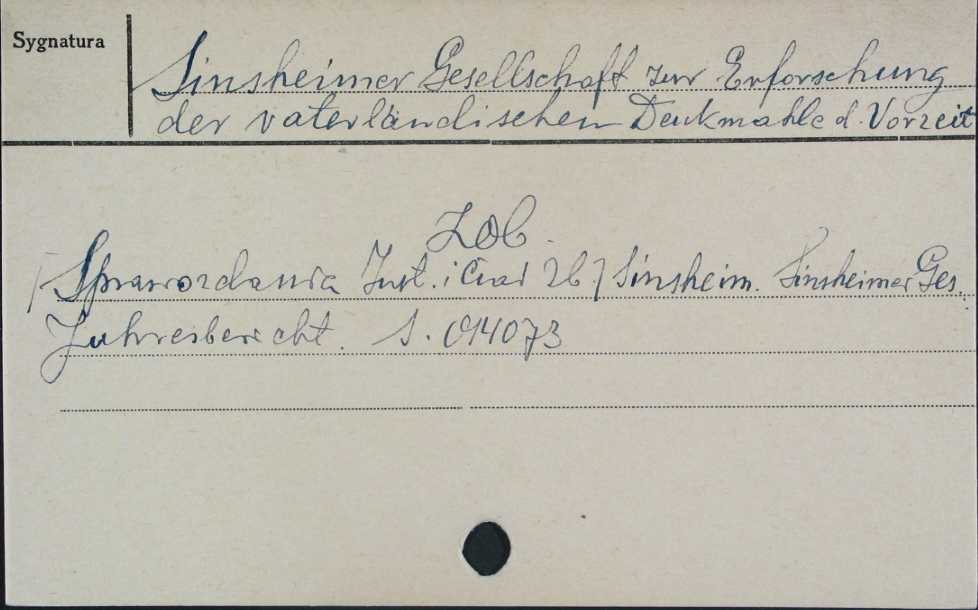 Sygnatura
Sinsheimer Gesellschaft zur Erforschung
der vaterländischen Denkmahle d. Vorzeit
Zob.
Sprawozdania Inst. i 2b.] Sinsheim. Sinsheimer Ges.
Jahresbericht. S. 014073